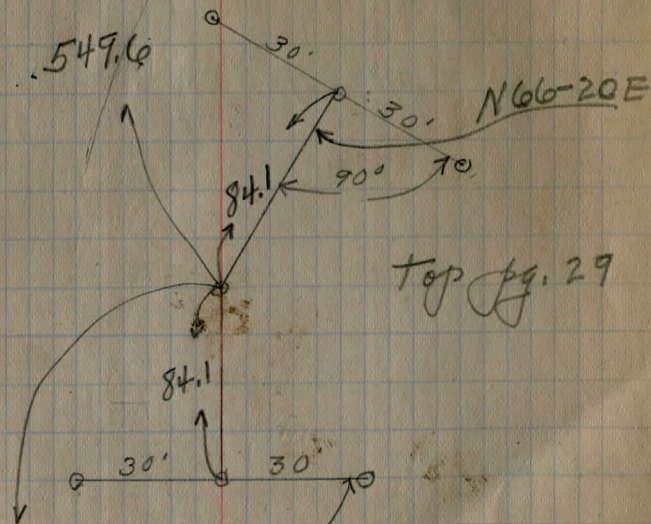 549.6
30'
30'
N66-20E
84.1
90°
Top pg. 29
84.1
30'
30'